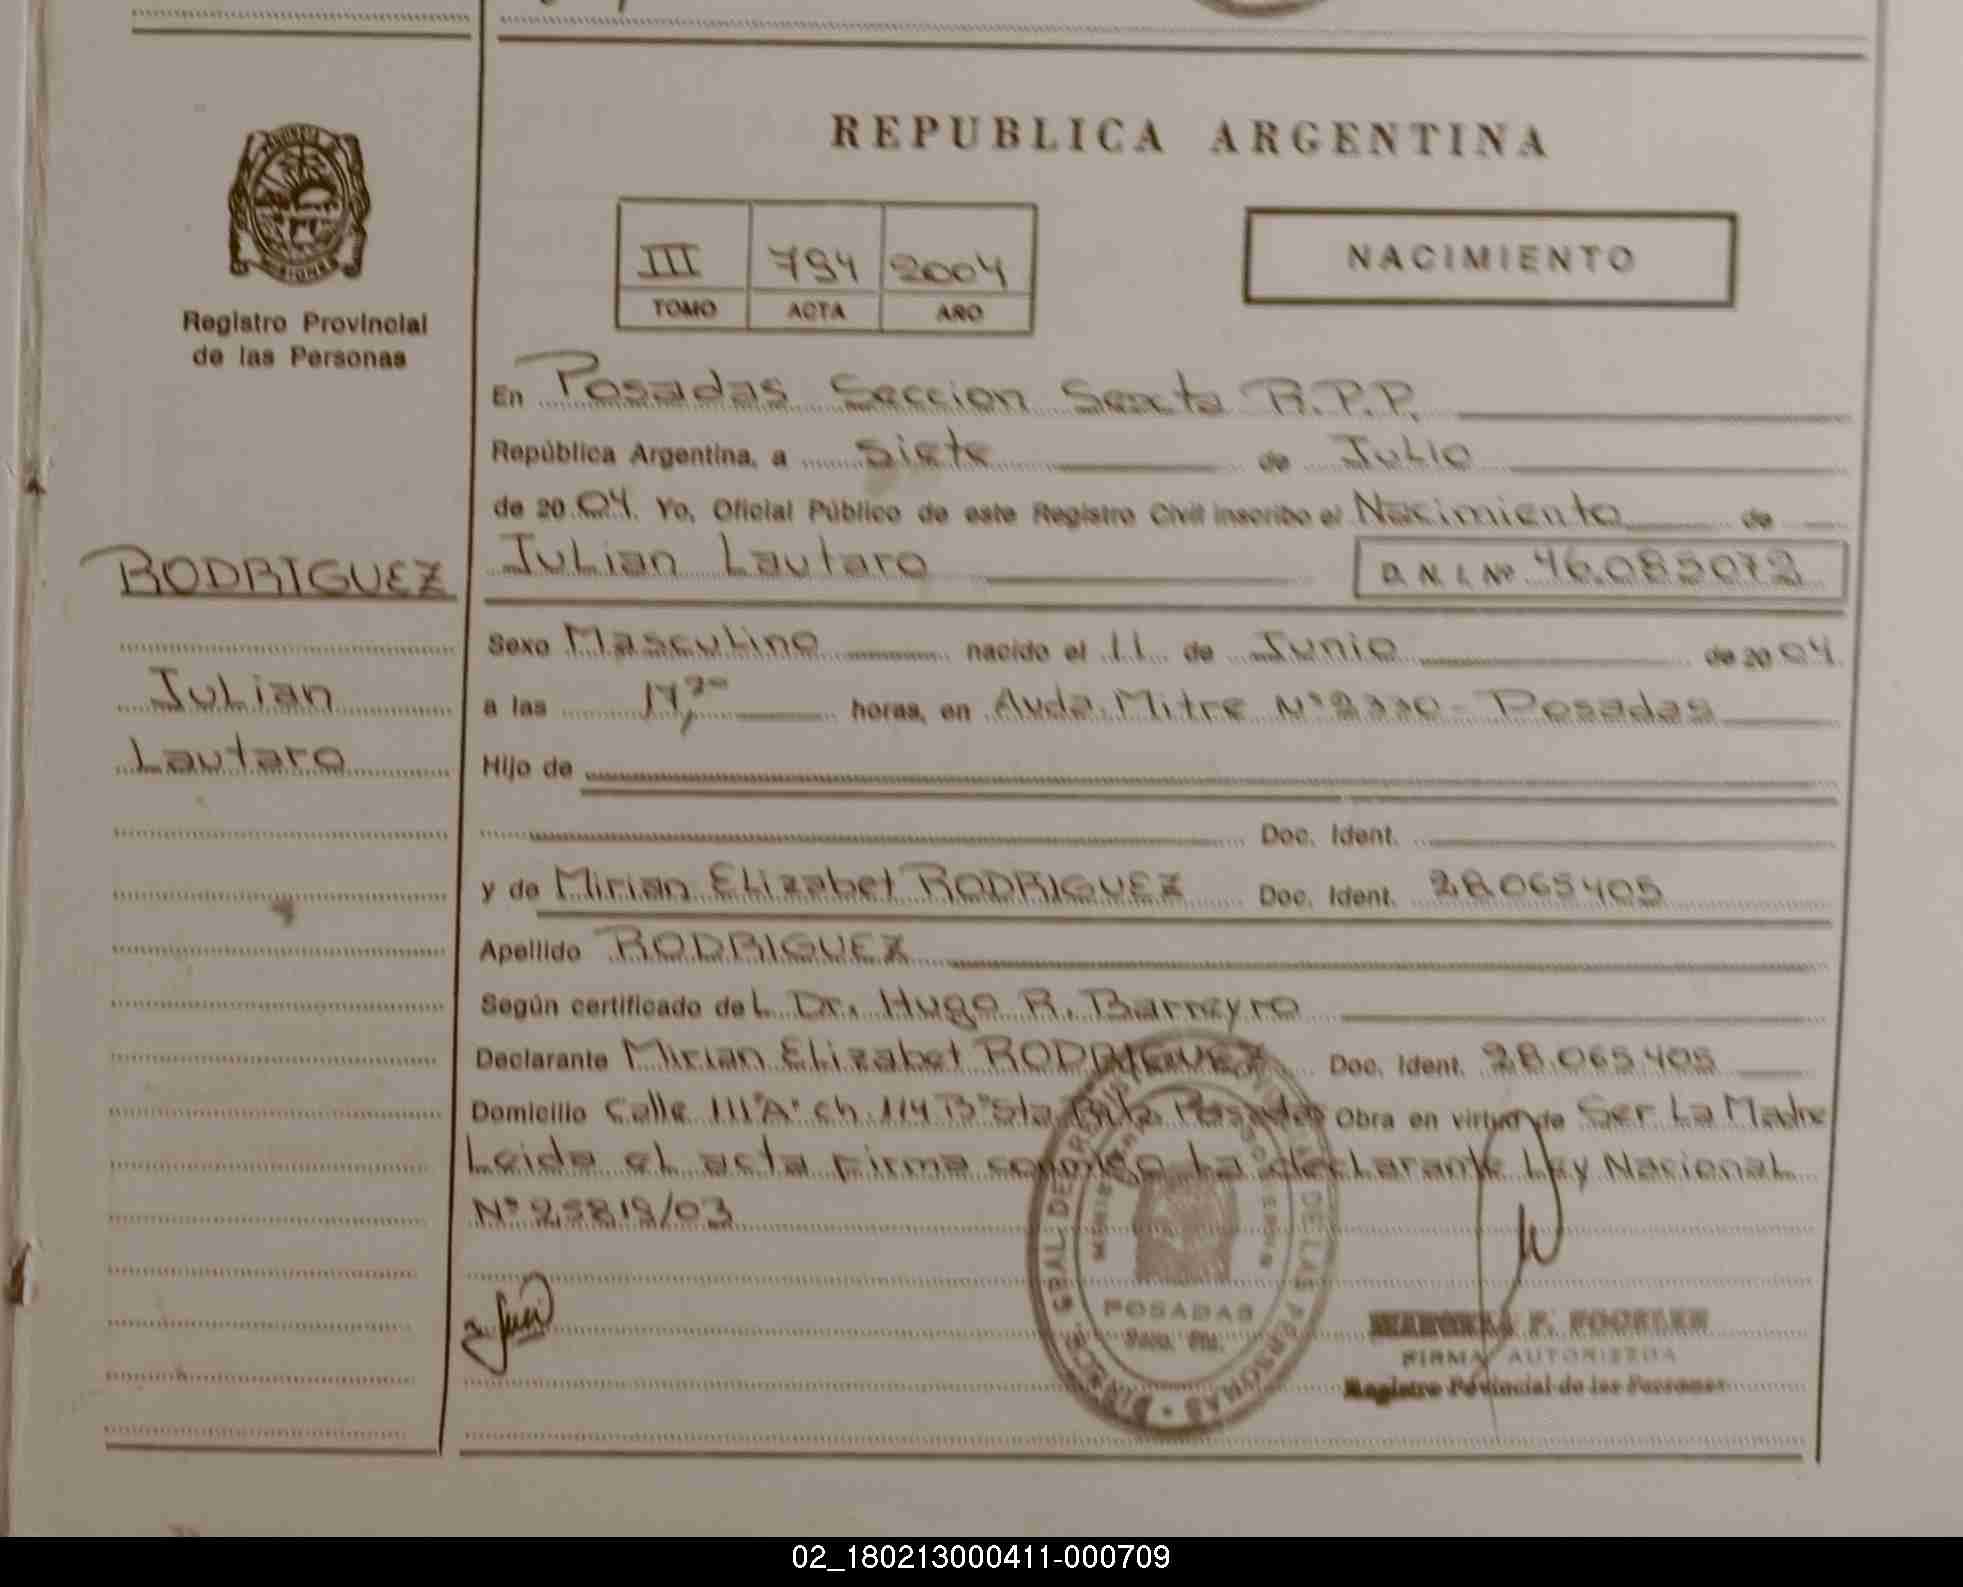 REPUBLICA ARGENTINA
III 794 2004
TOMO ACTA AÑO
NACIMIENTO
Registro Provincial
de las Personas
En Posadas Seccion Sexta R.P.P.
República Argentina, a Siete de Julio
de 2004. Yo, Oficial Público de este Registro Civil inscribo el Nacimiento de
Julian Lautaro D.N.I. Nº 46.085072
RODRIGUEZ
Julian
Lautaro
Sexo Masculino nacido el 11 de Junio de 2004.
a las horas, en Avda. Mitre Nº 2330 - Posadas
Hijo de
Doc. Ident.
y de Mirian Elizabet RODRIGUEZ Doc. Ident. 28.065405
Apellido RODRIGUEZ
Según certificado del Dr. Hugo R. Barreyro
Declarante Mirian Elizabet RODRIGUEZ Doc. Ident. 28.065.405
Domicilio Calle 111"A" ch. 114 Bº Sta Rita Posadas Obra en virtud de Ser La Madre
Leida el acta firma conmigo La declarante Ley Nacional
Nº 25819/03
POSADAS
FIRMA AUTORIZADA
Registro Provincial de las Personas
02_180213000411-000709